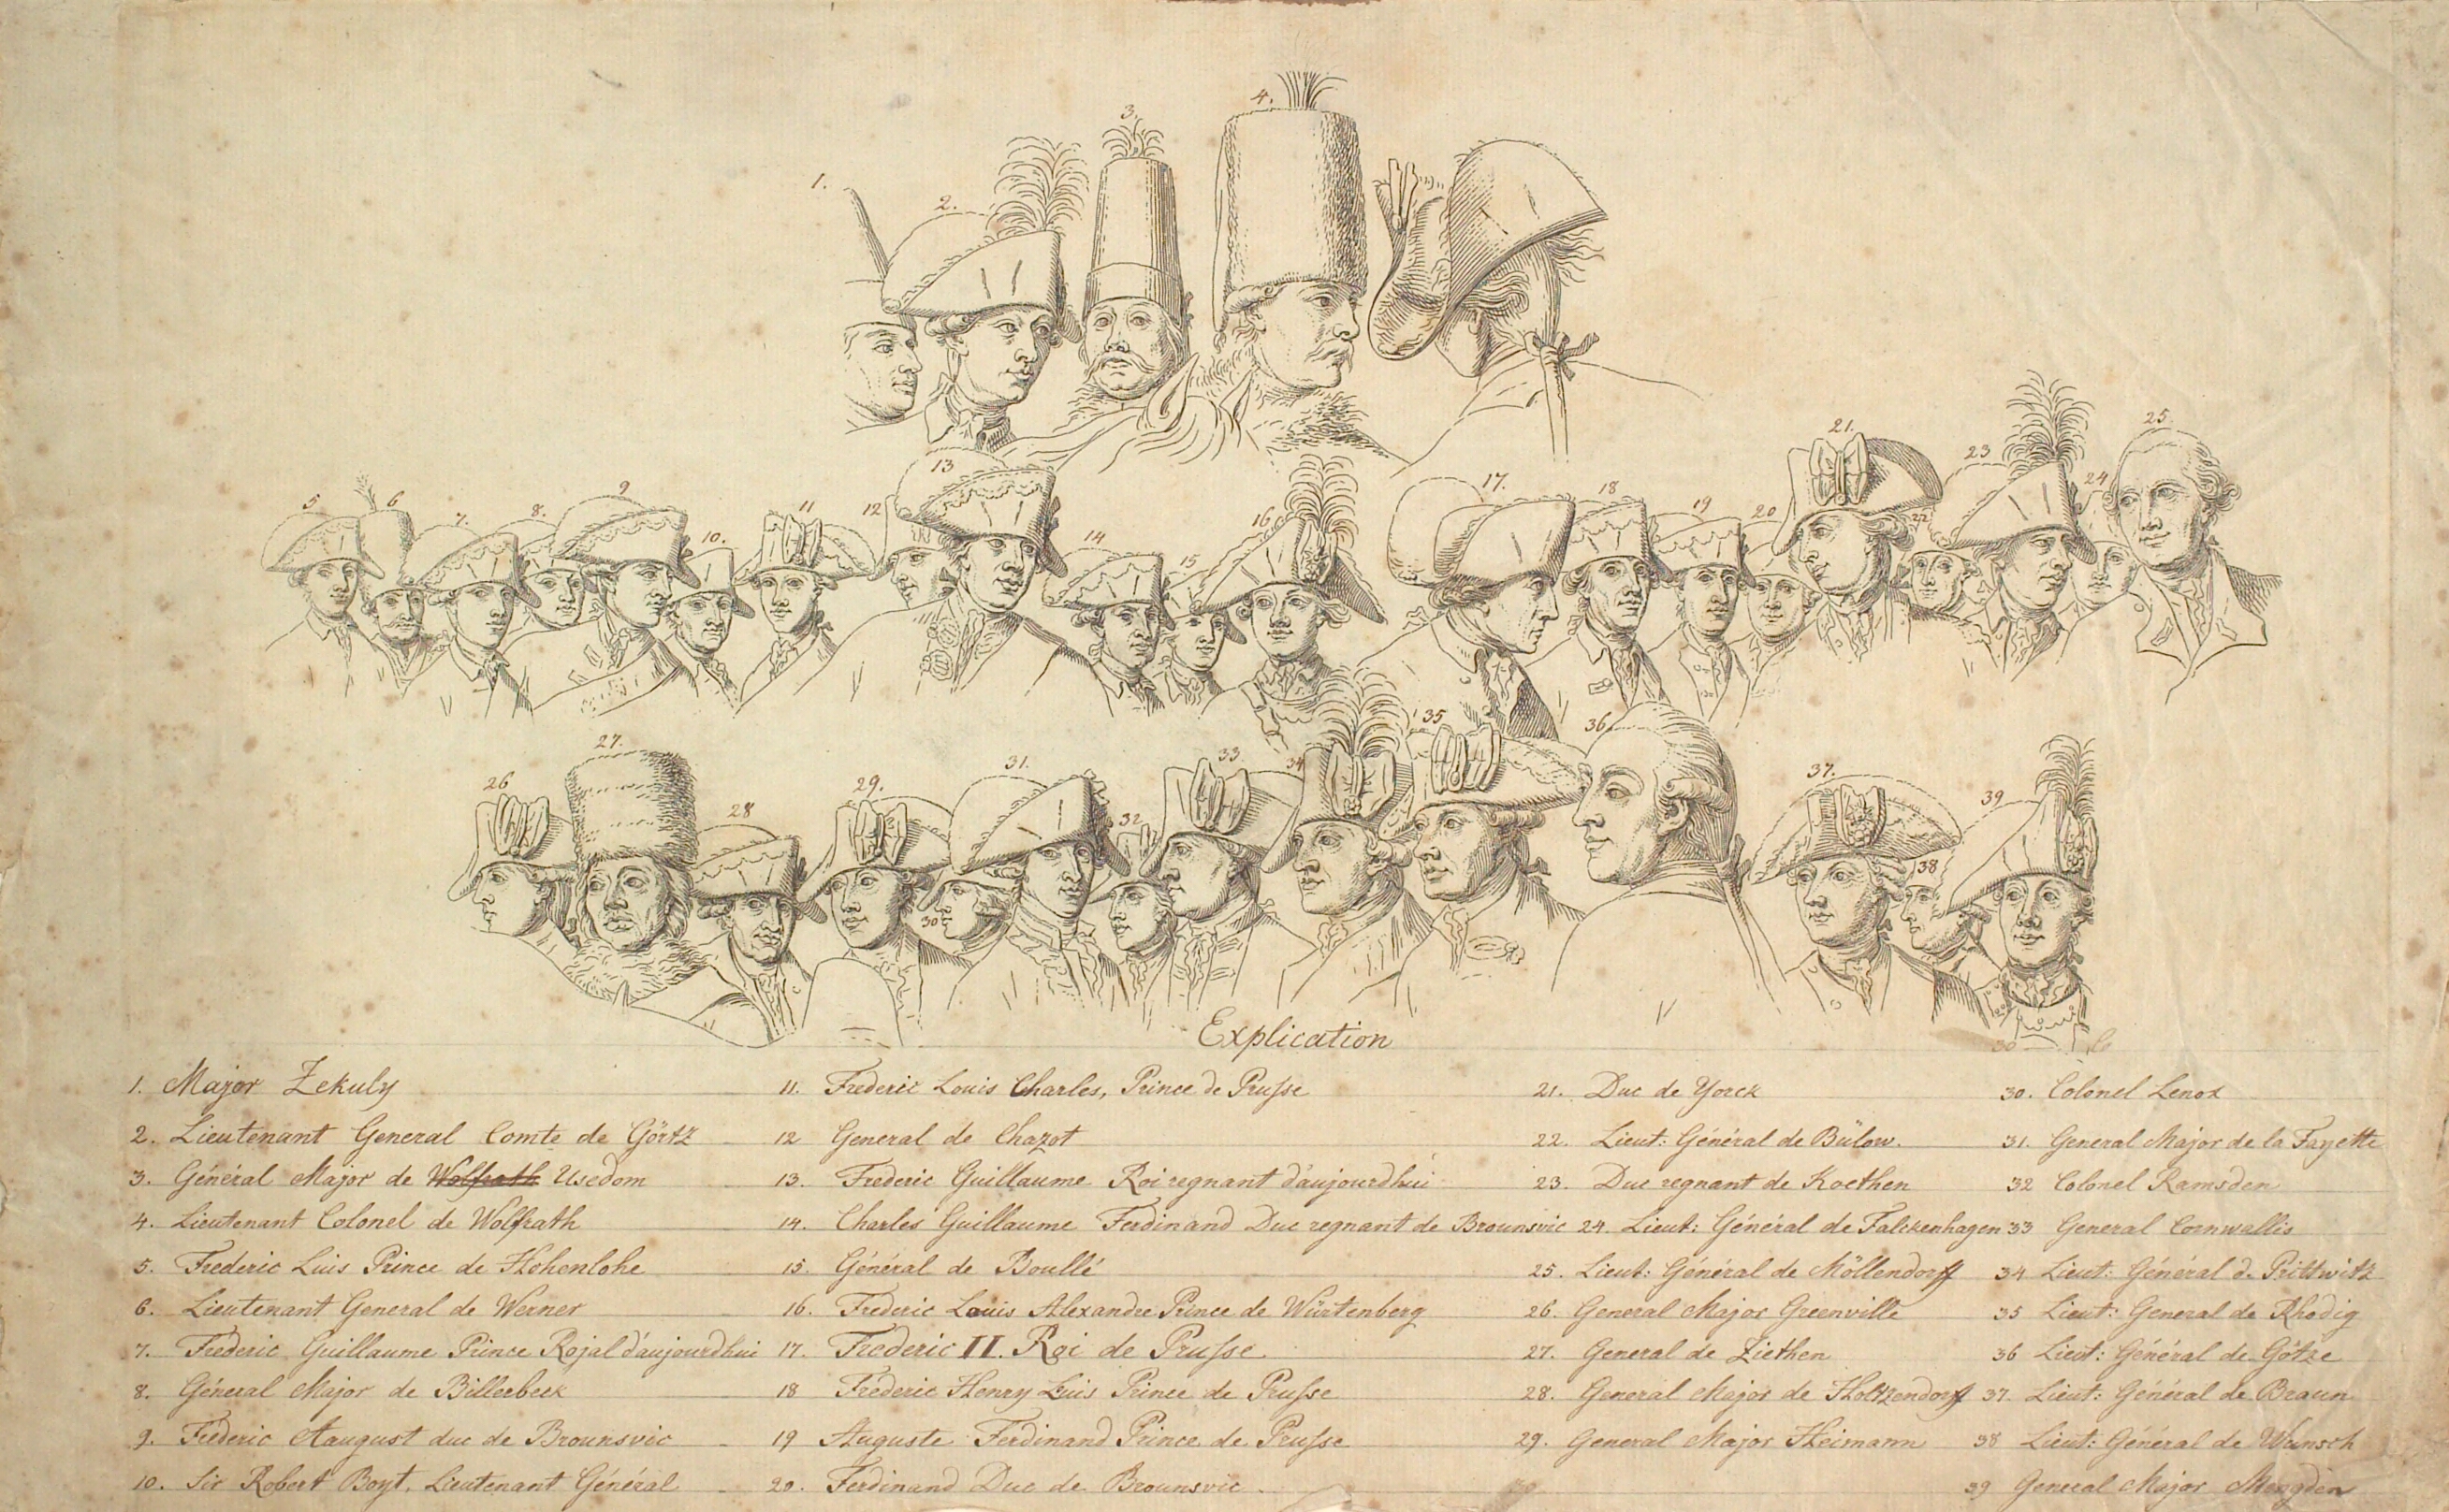 1.
2.
3.
4.
5
6
7.
8.
9
10.
11
12
13
14
15
16
17.
18
19
20
21.
22
23
24
25.
26
27.
28
29.
30
31.
32
33
34
35
36
37.
38
39
Explication
1. Major Zekuly
2. Lieutenant General Comte de Görtz
3. Général Major de Wolfrath Usedom
4. Lieutenant Colonel de Wolfrath
5. Frederic Luis Prince de Hohenlohe
6. Lieutenant General de Werner
7. Frederic Guillaume Prince Rojal d'aujourdhui
8. Géneral Major de Billerbeck
9. Frederic Aaugust duc de Brounsvic
10. Sir Robert Boyt, Lieutenant Général
11. Frederic Louis Charles, Prince de Prusse
12 General de Chazot
13. Frederic Guillaume Roi regnant d'aujourdhui
14. Charles Guillaume Ferdinand Duc regnant de Brounsvic
15. Général de Boullé
16. Frederic Louis Alexandre Prince de Würtenberg
17. Frederic II. Roi de Prusse
18 Frederic Henry Luis Prince de Prusse
19 Auguste Ferdinand Prince de Prusse
20. Ferdinand Duc de Brounsvic
21. Duc de Yorck
22. Lieut: Général de Bülow.
23. Duc regnant de Koethen
24. Lieut: Général de Falckenhagen
25. Lieut: Général de Möllendorff
26. General Major Greenville
27. General de Ziethen
28. General Major de Holtzendorff
29. General Major Heimann
30. Colonel Lenox
31. General Major de la Fayette
32 Colonel Ramsden
33 General Cornwallis
34 Lieut: Général de Prittwitz
35 Lieut: General de Rhodig
36 Lieut: Général de Götze
37. Lieut: Général de Braun
38 Lieut: Général de Wunsch
39 General Major Mengden